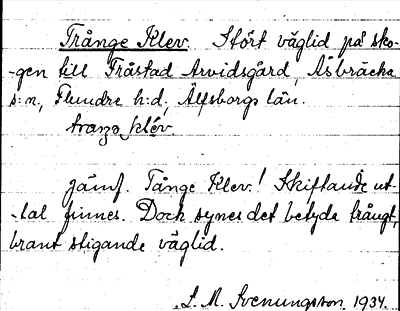 Trånge Klev. Stört väglid på sko-
-gen till Fråstad Arvidsgård, Åsbräcka
s:n, Flundre h:d. Älfsborgs län.
jämf. Tånge Klev! Skiftande ut-
-tal finnes. Dock synes det betyda trångt,
brant stigande väglid.
S. M. Svenungsson 1934.